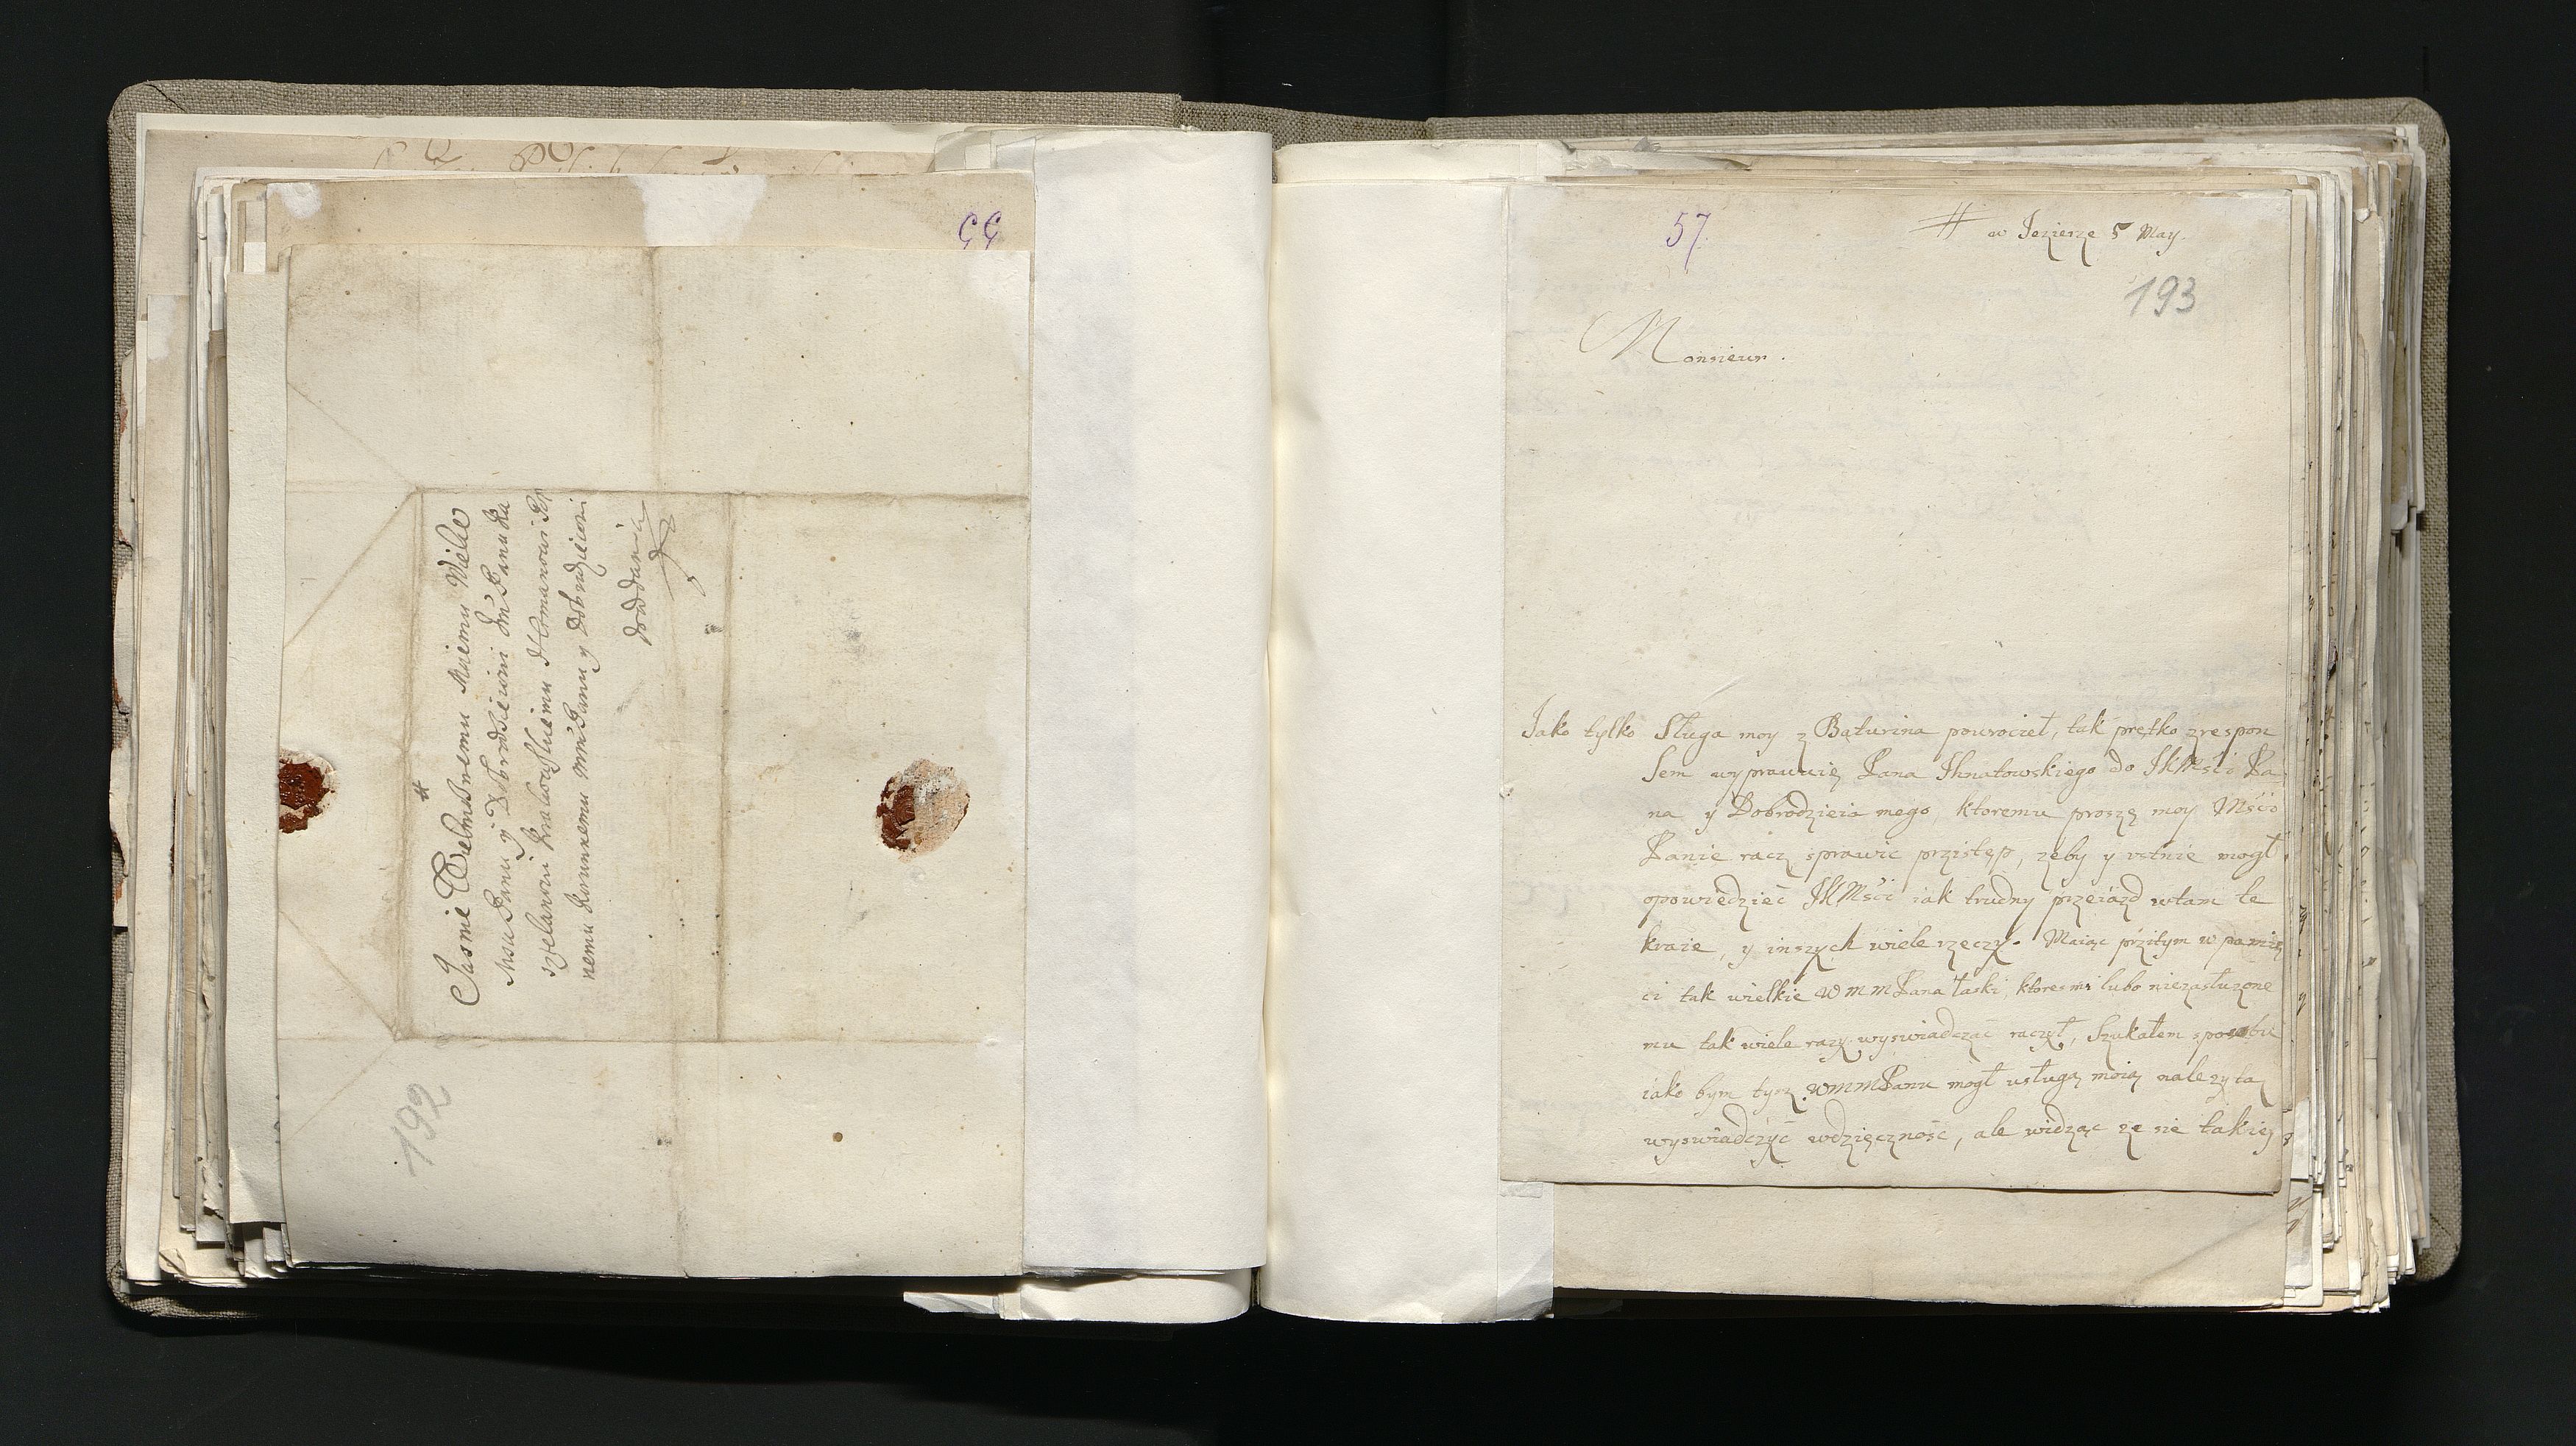 55
#
Jasnie Wielmożnemu Moiemu Wielce
Msu Panu y Dobrodzieiowi Jm Panu Ka
sztelanowi Krakowskiemu Hetmanowi
nemu Koronnemu mm Panu y Dobrodzieiowi
do oddania
192
57.
# w Jezierze 5 May.
193
Monsieur.
Jako tylko Sługa moy z Baturina powrocieł, tak prętko zrespon
sem wyprawię Pana Ihnatowskiego do JKMści Pa
na y Dobrodzieia mego, ktoremu proszę moy Mścio
Panie racz sprawic przistęp, zeby y vstnie mogł
opowiedzieć JKMści iak trudny przeiazd wtam te
kraie, y inszych wiele rzeczy. Maiąc przitym w pamię
ci tak wielkie WmmPana łaski, ktoresmi lubo niezasłuzone
mu tak wiele razy wyswiadczać raczył, Szukałem sposobu
iako bym tysz WmmPanu mogł usługą moią nalezytą
wyswiadczyć wdzięcznośc, ale widząc ze sie takiey